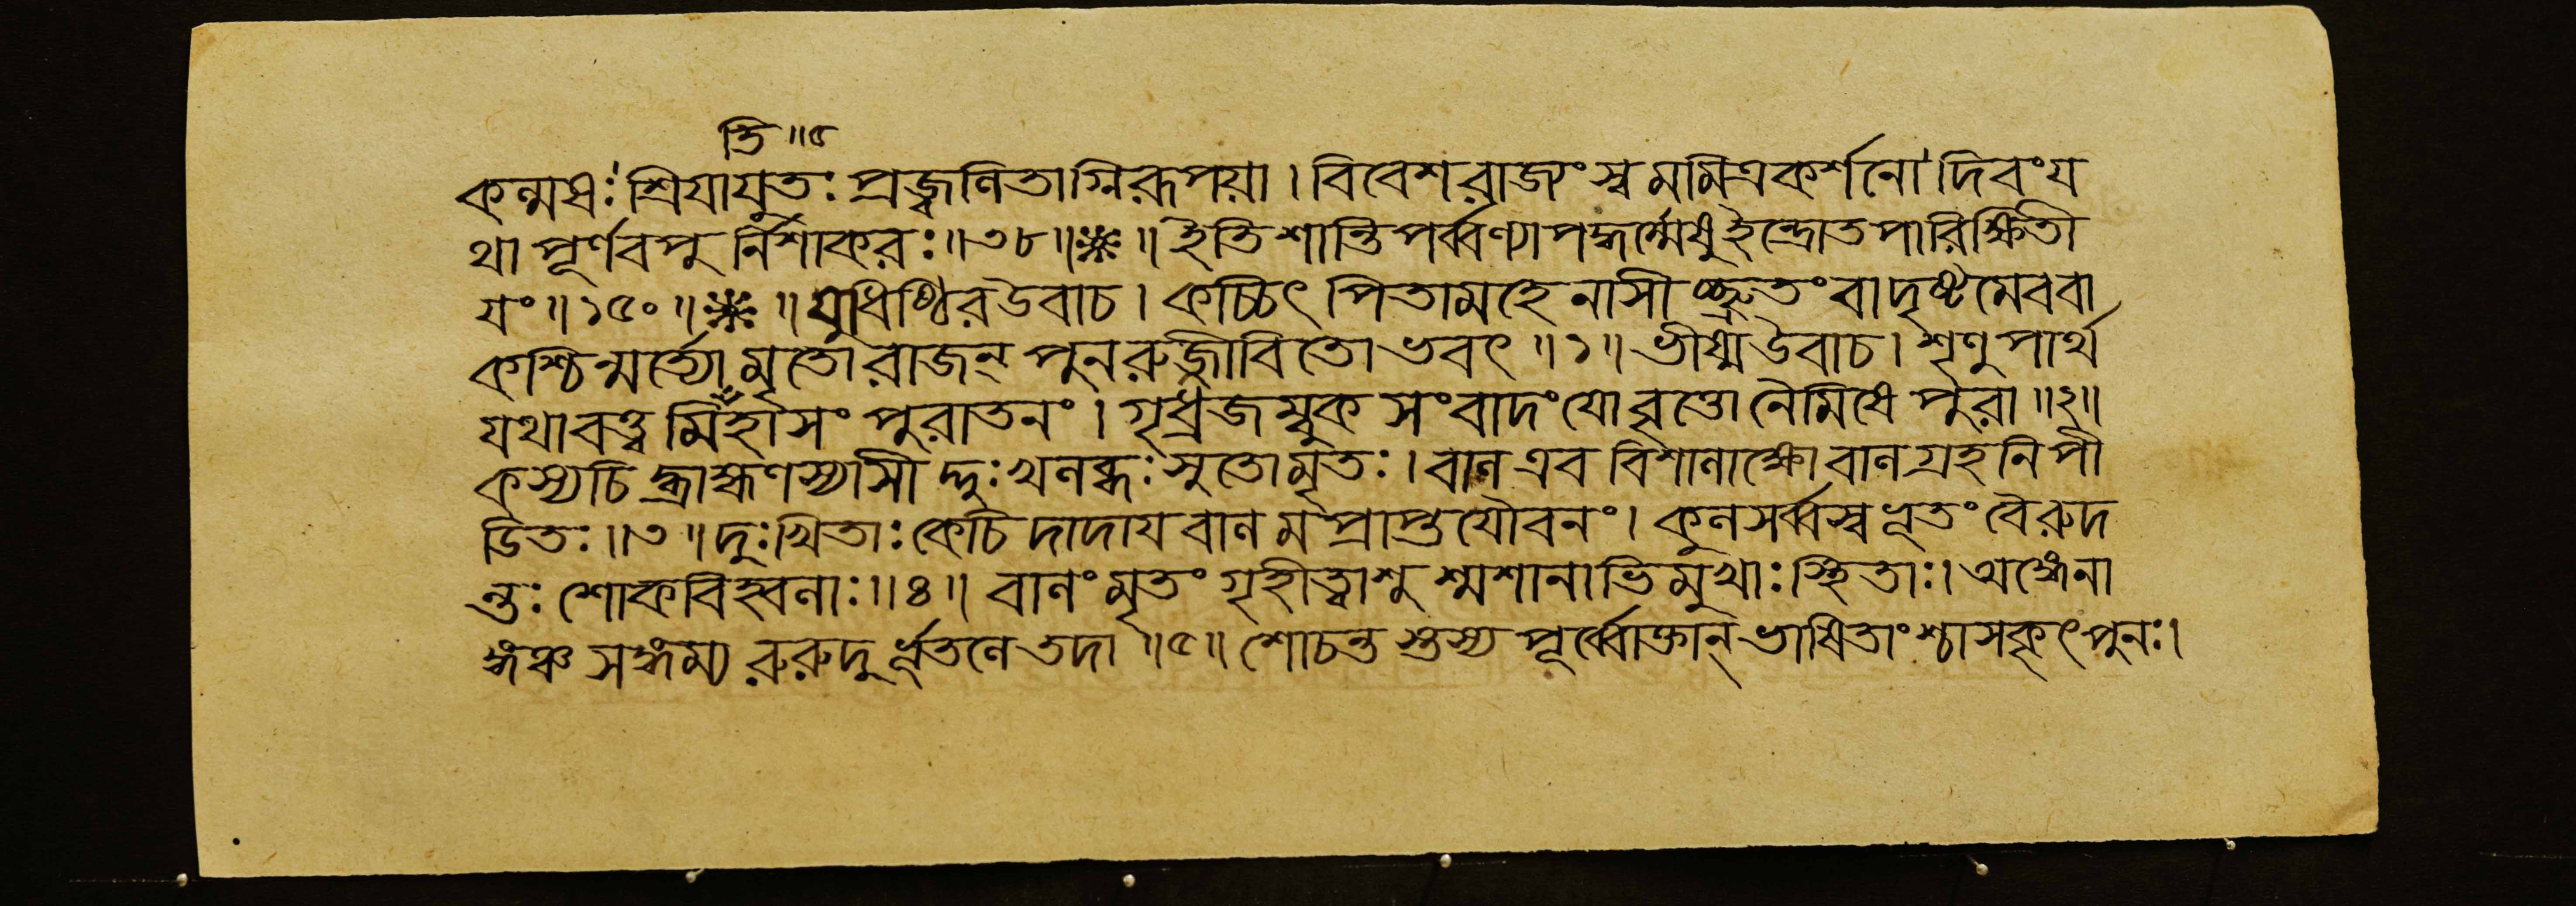 ত্তি ॥৫
কল্মষঃ শ্রিযাযুতঃ প্রজ্বলিতাগ্নিরূপয়া । বিবেশরাজ্যং স্বমমিত্রকর্শনো দিবংয
থা পূর্ণবপু র্নিশাকরঃ ॥৩৮॥❋॥ ইতি শান্তিপর্ব্বণ্যাপদ্ধর্ম্মেষু ইন্দ্রোতপারিক্ষিতী
যং ॥১৫০॥❋॥ যুধিষ্ঠিরউবাচ । কচ্চিৎ পিতামহেনাসী চ্ছ্রুতং বাদৃষ্টমেববা
কশ্চিন্মর্ত্ত্যো মৃতোরাজন্ পুনরুজ্জীবিতোভবৎ ॥১॥ ভীষ্মউবাচ । শৃণু পার্থ
যথাবত্ত্বমিহাসং পুরাতনং । গৃধ্রজম্বুক সংবাদং যোবৃত্তো নৈমিষে পুরা ॥২॥
কস্যচি দ্ব্রাহ্মণস্যাসী দ্দুঃখলব্ধঃ সুতোমৃতঃ । বাল এব বিশালাক্ষো বালগ্রহনিপী
ডিতঃ ॥৩॥ দুঃখিতাঃ কেচি দাদায বালমপ্রাপ্তযৌবনং । কুলসর্ব্বস্বভূতং বৈরুদ
ন্তঃ শোকবিহ্বলাঃ ॥৪॥ বালং মৃতং গৃহীত্বাশু শ্মশানাভিমুখাঃ স্থিতাঃ । অঙ্কেনা
ঙ্কঞ্চ সঙ্কম্য রুরুদু র্ভূতলে তদা ॥৫॥ শোচন্তস্তস্য পূর্ব্বোক্তান্ ভাষিতাংশ্চাসকৃৎ পুনঃ ।